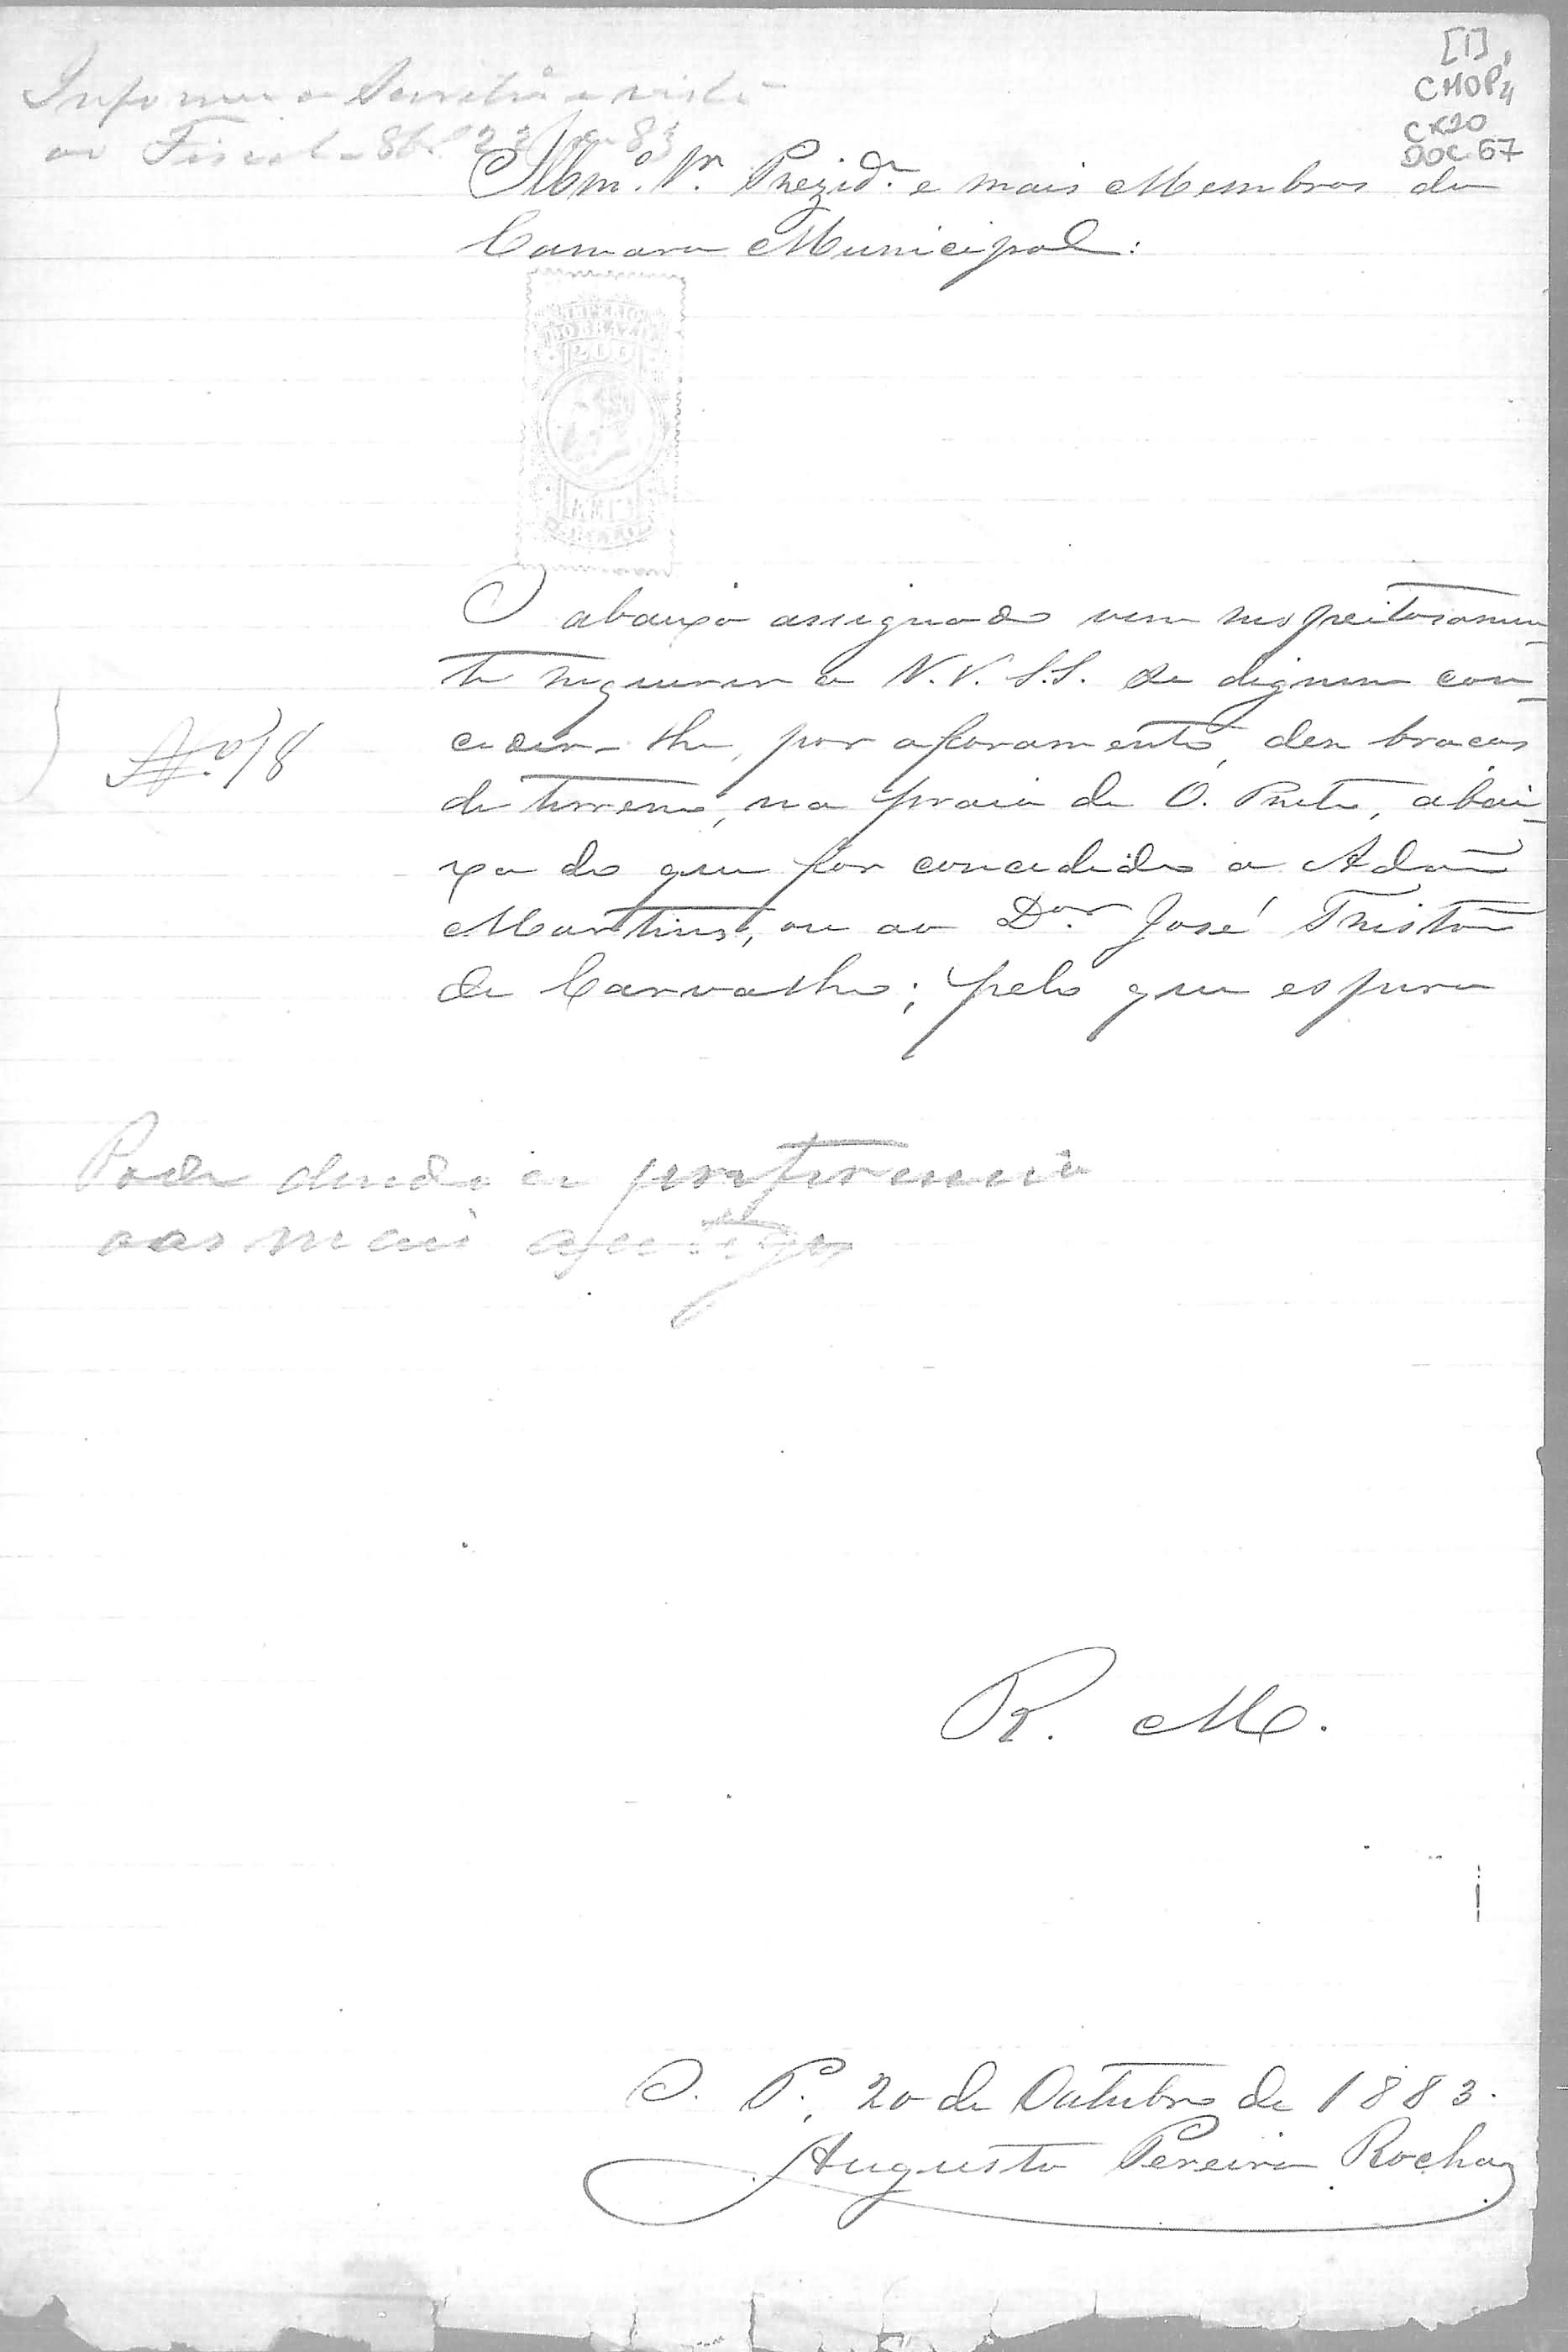 [1]
CMOP
CX20
DOC. 67
Informe a Secretaria e
ao Fiscal
Illmo. Sr. Prezide. e mais Membros da
Camara Municipal:
IMPERIO
DO BRAZIL
200
REIS
O abaixo assignado vem respeitosamen
te requerer a V.V. S.S. se dignem con
ceder-lhe, por aforamento, dez braças
de terreno, na praia de O. Preto, abai
xo do que for concedido a Adão
Martins, ou ao Dor. José Tristão
de Carvalho; pelo que espera
No. 18
Pode dando a preferencia
aos mais antigos
R. M.
O. P. 20 de Outubro de 1883.
Augusto Pereira Rocha